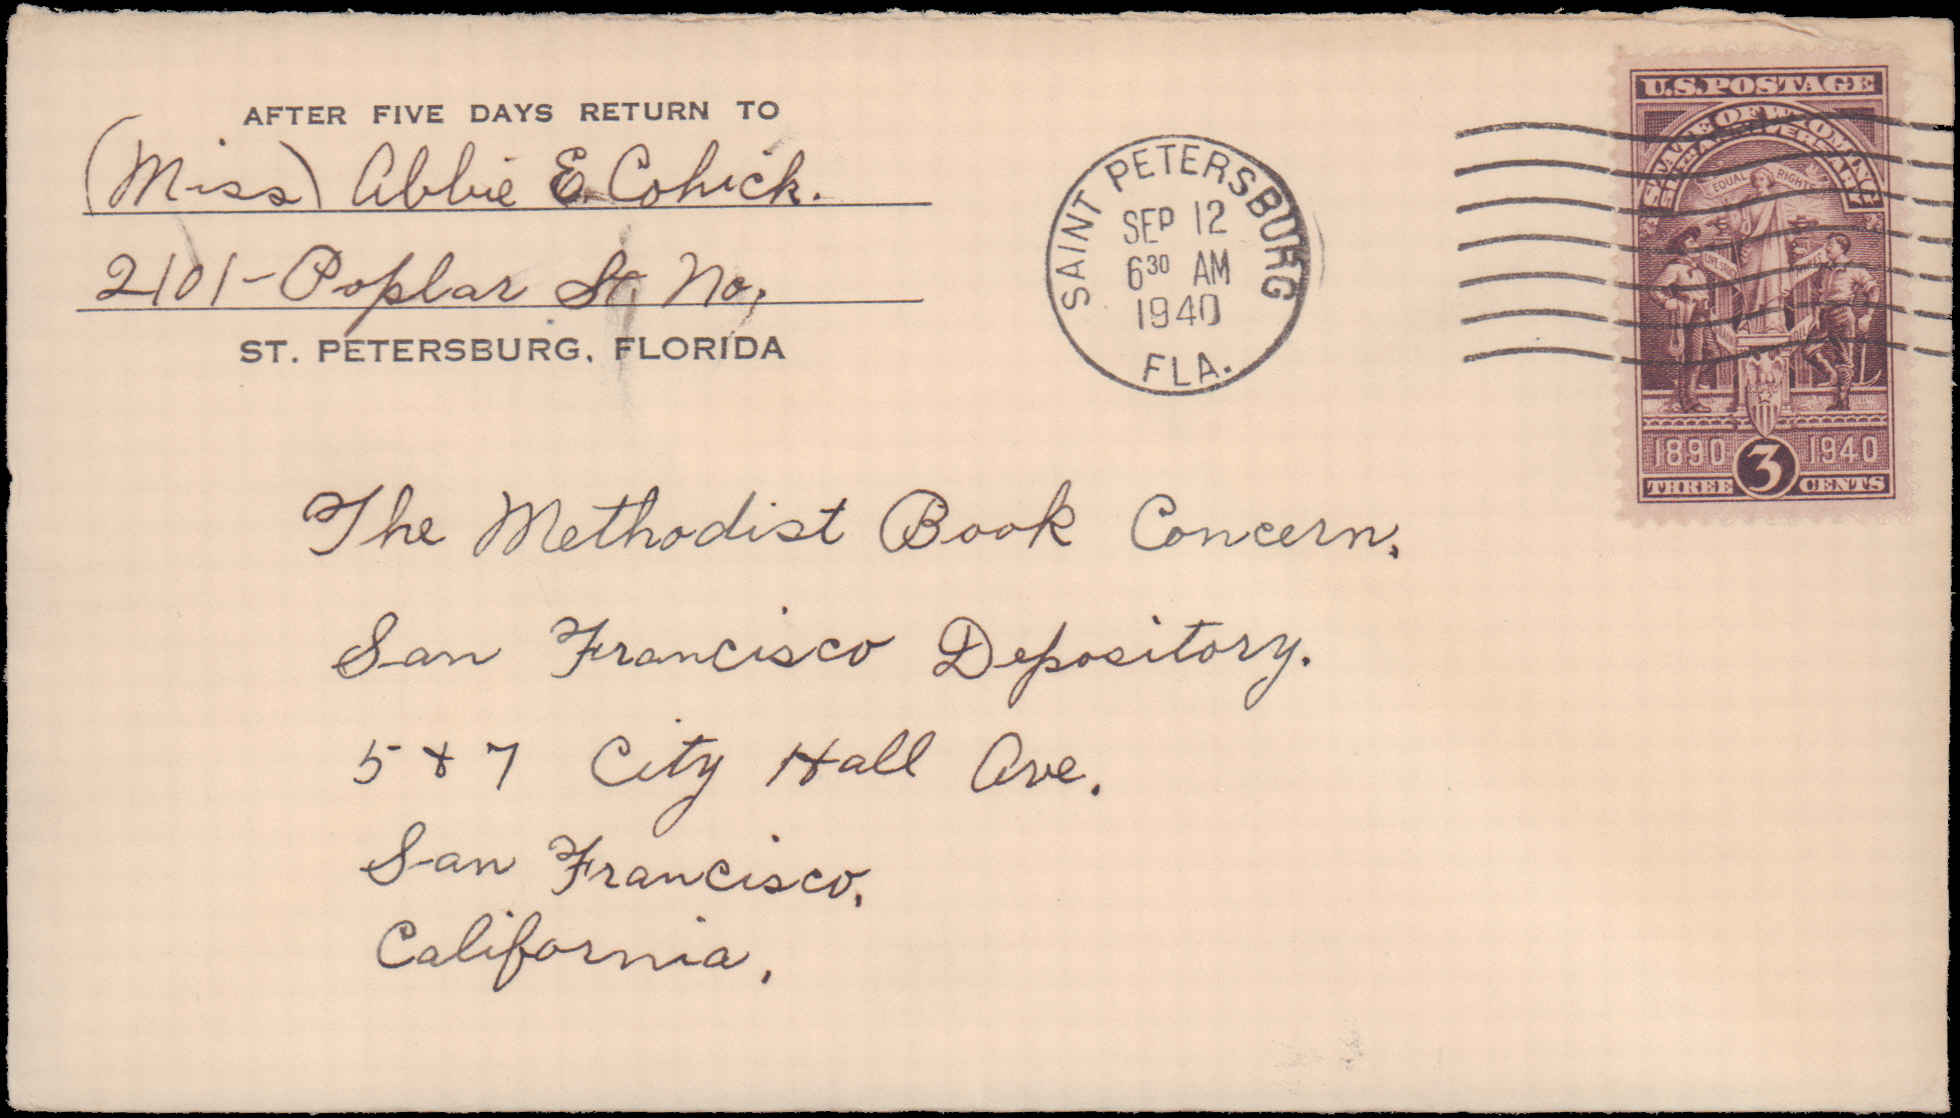 AFTER FIVE DAYS RETURN TO
(Miss) Abbie E. Cohick.
2101-Poplar St. No.,
ST. PETERSBURG, FLORIDA
SAINT PETERSBURG
SEP 12
6³⁰ AM
1940
FLA.
U.S. POSTAGE
STATE OF WYOMING
50TH ANNIVERSARY
EQUAL RIGHTS
LIVE STOCK
MINES
1890 1940
3
THREE CENTS
The Methodist Book Concern,
San Francisco Depository.
5 & 7 City Hall Ave.
San Francisco,
California,